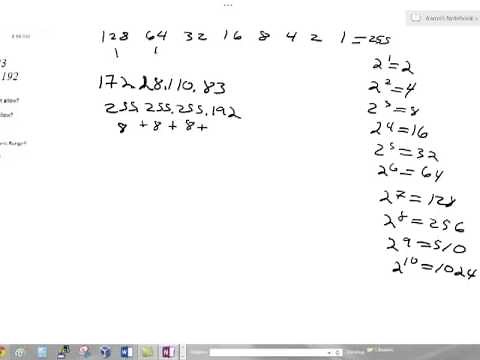 Aaron's Notebook
128 64 32 16 8 4 2 1 = 255
1 1
172.28.110.83
255.255.255.192
8 + 8 + 8 +
2^1 = 2
2^2 = 4
2^3 = 8
2^4 = 16
2^5 = 32
2^6 = 64
2^7 = 128
2^8 = 256
2^9 = 510
2^10 = 1024
3
192
Range?